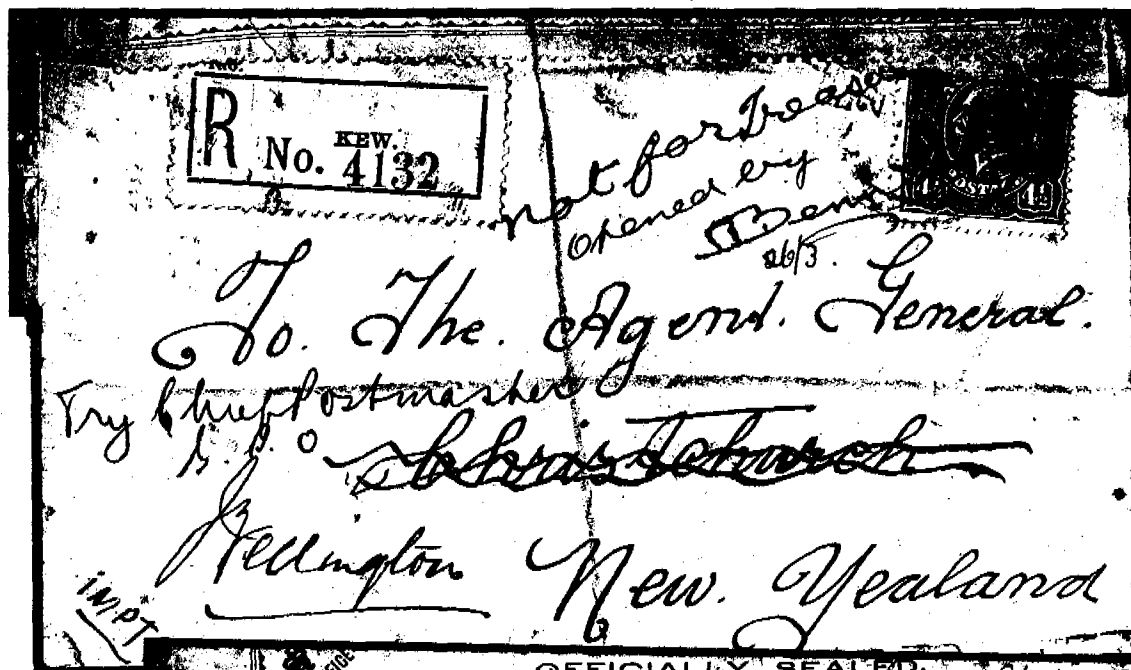 R No. KEW. 4132
Not for Treasury
opened by
26/3.
To. The. Agent. General.
Try Chief Postmaster
G. P. O
Christchurch
Wellington
New. Zealand
IMPT
POSTAGE
OFFICIALLY SEALED.